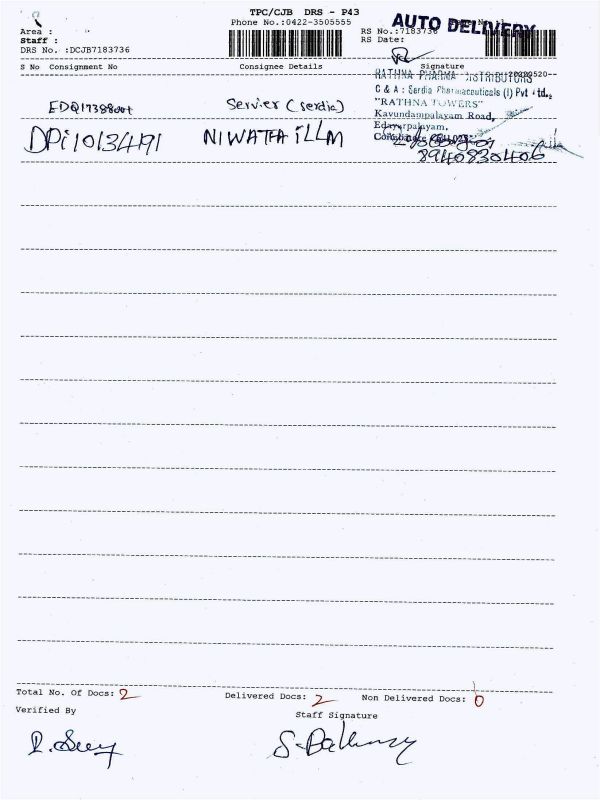 TPC/CJB DRS - P43
Phone No.:0422-3505555
AUTO DELIVERY
Area :
Staff :
DRS No. :DCJB7183736
RS No.:7183736
RS Date:
S No Consignment No Consignee Details Signature
RATHNA PHARMA DISTRIBUTORS
C & A : Serdia Pharmaceuticals (I) Pvt Ltd.,
"RATHNA TOWERS"
Kavundampalayam Road,
Edayarpalayam,
Servier (serdia)
DPi10134191 NIWATHA iLLM
8940830406
Total No. Of Docs: 2 Delivered Docs: 2 Non Delivered Docs: 0
Verified By Staff Signature